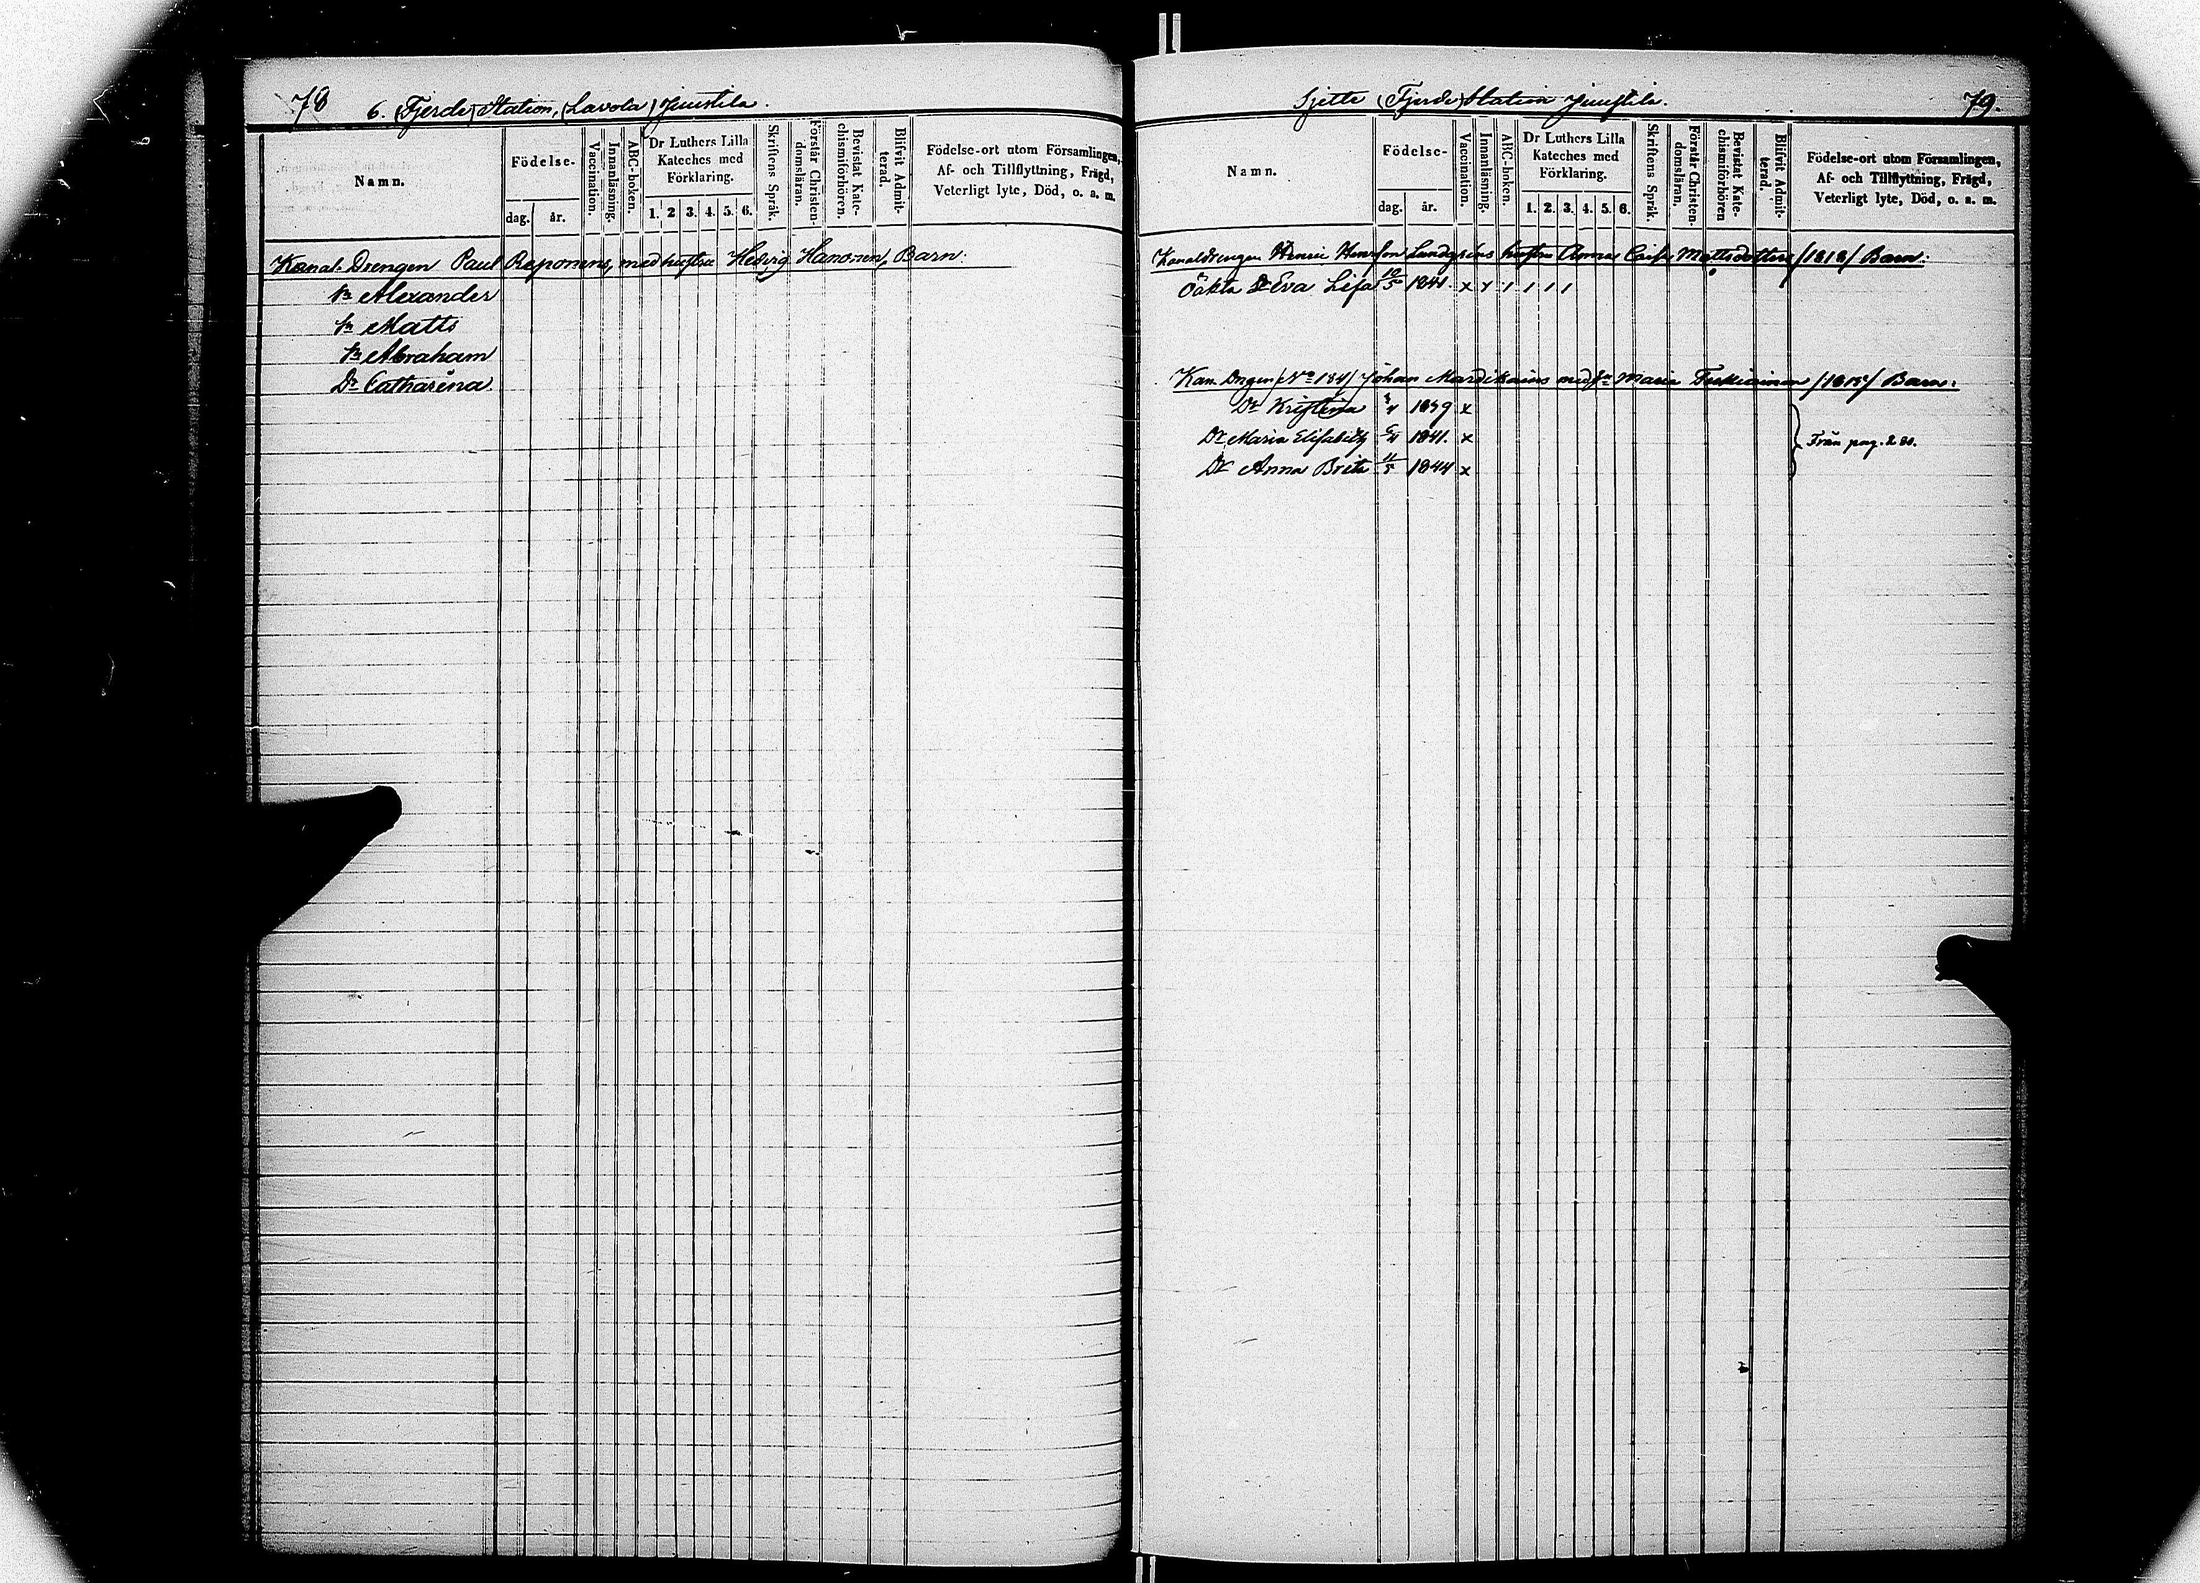 78
6. (Fjerde) Station, (Lavola) Juustila.
Namn.
Födelse-
dag.
år.
Vaccination.
Innanläsning.
ABC-boken.
Dr Luthers Lilla
Kateches med
Förklaring.
1. 2 3. 4. 5. 6.
Skriftens Språk.
Förstår Christen-
domsläran.
Bevistat Kate-
chismiförhören.
Blifvit Admit-
terad.
Födelse-ort utom Församlingen,
Af- och Tillflyttning, Frägd,
Veterligt lyte, Död, o. a. m.
Kanal. Drengen Paul Reponens, med hustru Hedvig Hanonen, Barn:
Sn Alexander
Sn Matts
Sn Abraham
Dr Catharina
Sjette (Fjerde) Station Juustila.
79.
Namn.
Födelse-
dag.
år.
Vaccination.
Innanläsning.
ABC-boken.
Dr Luthers Lilla
Kateches med
Förklaring.
1. 2. 3. 4. 5. 6.
Skriftens Språk.
Förstår Christen-
domsläran.
Bevistat Kate-
chismiförhören
Blifvit Admit-
terad.
Födelse-ort utom Församlingen,
Af- och Tillflyttning, Frägd,
Veterligt lyte, Död, o. a. m.
Kanaldrengen Henric Lundgréns hustru Anna Mattsdotters /1818/ Barn:
Oäkta Dr Eva Lisa 10/5 1841. x x / / / / /
Kan. Drngen /No 184/ Johan med Maria /1815/ Barn:
Dr Kristina 1839 x
Dr Maria Elisabeth 1841. x
Dr Anna Brita 11/5 1844 x
Från pag. 280.